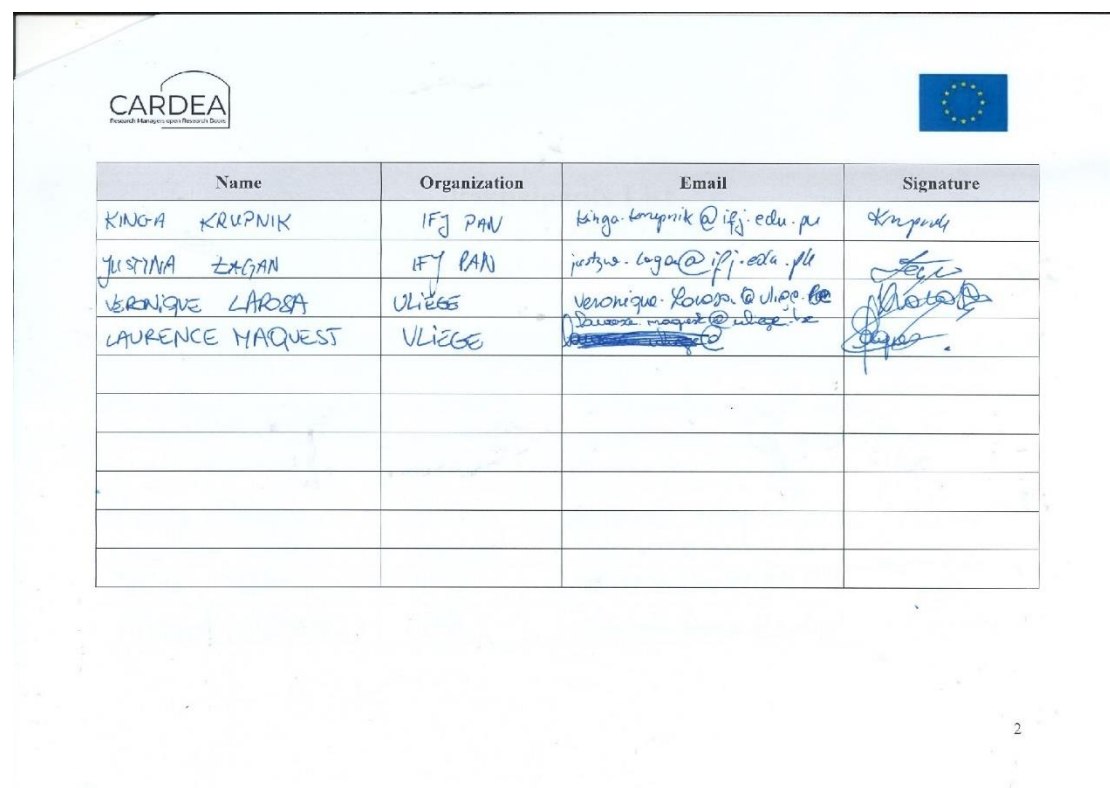 CARDEA
Research Managers open Research Doors
Name Organization Email Signature
KINGA KRUPNIK IFJ PAN kinga.krupnik@ifj.edu.pl
JUSTYNA ŁAGAN IFJ PAN justyna.lagan@ifj.edu.pl
VERONIQUE LAROSA ULIÈGE veronique.larosa@uliege.be
LAURENCE MAQUEST ULIÈGE
2